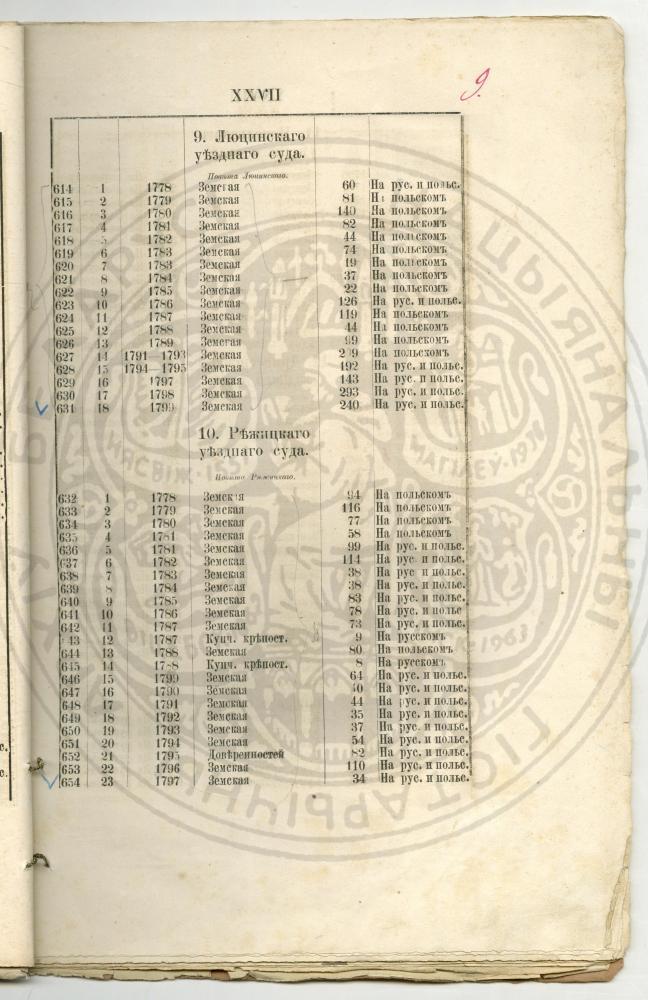 XXVII
9.
9. Люцинскаго
уѣзднаго суда.
Повѣта Люцинскаго.
614 1 1778 Земская 60 На рус. и польс.
615 2 1779 Земская 81 На польскомъ
616 3 1780 Земская 140 На польскомъ
617 4 1781 Земская 82 На польскомъ
618 5 1782 Земская 44 На польскомъ
619 6 1783 Земская 74 На польскомъ
620 7 1783 Земская 19 На польскомъ
621 8 1784 Земская 37 На польскомъ
622 9 1785 Земская 22 На польскомъ
623 10 1786 Земская 126 На рус. и польс.
624 11 1787 Земская 119 На польскомъ
625 12 1788 Земская 44 На польскомъ
626 13 1789 Земская 99 На польскомъ
627 14 1791—1793 Земская На польскомъ
628 15 1794—1795 Земская 192 На рус. и польс.
629 16 1797 Земская 143 На рус. и польс.
630 17 1798 Земская 293 На рус. и польс.
631 18 1799 Земская 240 На рус. и польс.
10. Рѣжицкаго
уѣзднаго суда.
632 1 1778 Земская 94 На польскомъ
633 2 1779 Земская 116 На польскомъ
634 3 1780 Земская 77 На польскомъ
635 4 1781 Земская 58 На польскомъ
636 5 1781 Земская 99 На рус. и польс.
637 6 1782 Земская 114 На рус. и польс.
638 7 1783 Земская 38 На рус. и польс.
639 8 1784 Земская 38 На рус. и польс.
640 9 1785 Земская 83 На рус. и польс.
641 10 1786 Земская 78 На рус. и польс
642 11 1787 Земская 73 На рус. и польс.
643 12 1787 Купч. крѣпост. 9 На русскомъ
644 13 1788 Земская 80 На польскомъ
645 14 1788 Купч. крѣпост. 8 На русскомъ
646 15 1799 Земская 64 На рус. и польс.
647 16 1790 Земская 40 На рус. и польс.
648 17 1791 Земская 44 На рус. и польс.
649 18 1792 Земская 35 На рус. и польс.
650 19 1793 Земская 37 На рус. и польс.
651 20 1794 Земская 54 На рус. и польс.
652 21 1795 Довѣренностей 82 На рус. и польс.
653 22 1796 Земская 110 На рус. и польс.
654 23 1797 Земская 34 На рус. и польс.